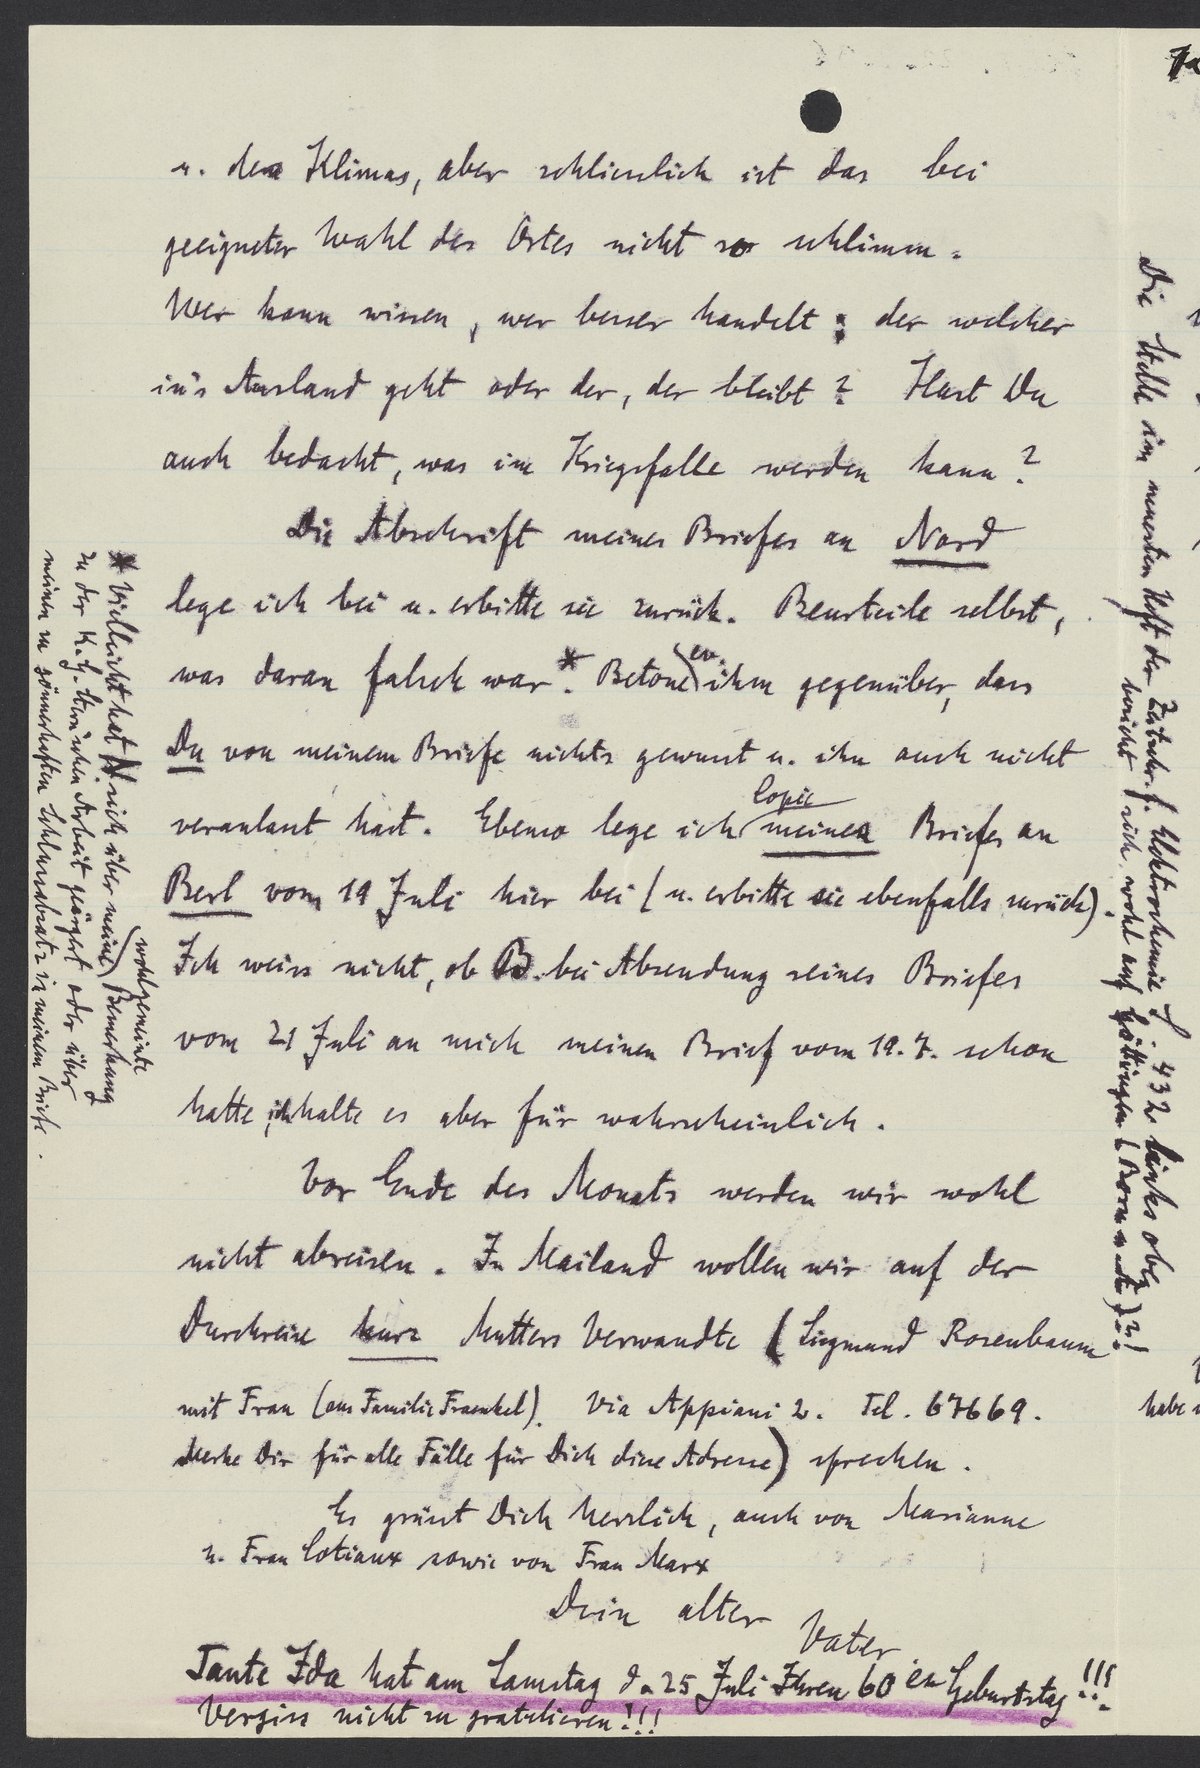 u. des Klimas, aber schliesslich ist das bei
geeigneter Wahl des Ortes nicht so schlimm.
Wer kann wissen, wer besser handelt: der welcher
in's Ausland geht oder der, der bleibt? Hast Du
auch bedacht, was im Kriegsfalle werden kann?
Die Abschrift meines Briefes an Nord
lege ich bei u. erbitte sie zurück. Beurteile selbst,
was daran falsch war*. Betone ev. ihm gegenüber, dass
Du von meinem Briefe nichts gewusst u. ihn auch nicht
veranlasst hast. Ebenso lege ich Copie meines Briefes an
Berl vom 19 Juli hier bei (u. erbitte sie ebenfalls zurück).
Ich weiss nicht, ob B. bei Absendung seines Briefes
vom 21 Juli an mich meinen Brief vom 19.7. schon
hatte, ich halte es aber für wahrscheinlich.
Vor Ende des Monats werden wir wohl
nicht abreisen. In Mailand wollen wir auf der
Durchreise kurz Mutters Verwandte (Siegmund Rosenbaum
mit Frau (aus Familie Fraenkel). Via Appiani 2. Tel. 67669.
Merke Dir für alle Fälle für Dich diese Adresse) sprechen.
Es grüsst Dich herzlich, auch von Marianne
u. Frau Cotiaux sowie von Frau Marx
Dein alter Vater
Tante Ida hat am Samstag d. 25 Juli Ihren 60 en Geburtstag!!!
Vergiss nicht zu gratulieren!!!
* Vielleicht hat N. sich über meine wohlgemeinte Bemerkung
zu der K.g. Arbeit geärgert oder über
meinen zu gönnerhaften Schlussabsatz in meinem Briefe.
Die Stelle im neuesten Heft der Zeitschr. f. Elektrochemie S. 432 links oben
bezieht sich wohl auf Göttingen (Born u. ) ?!
habe